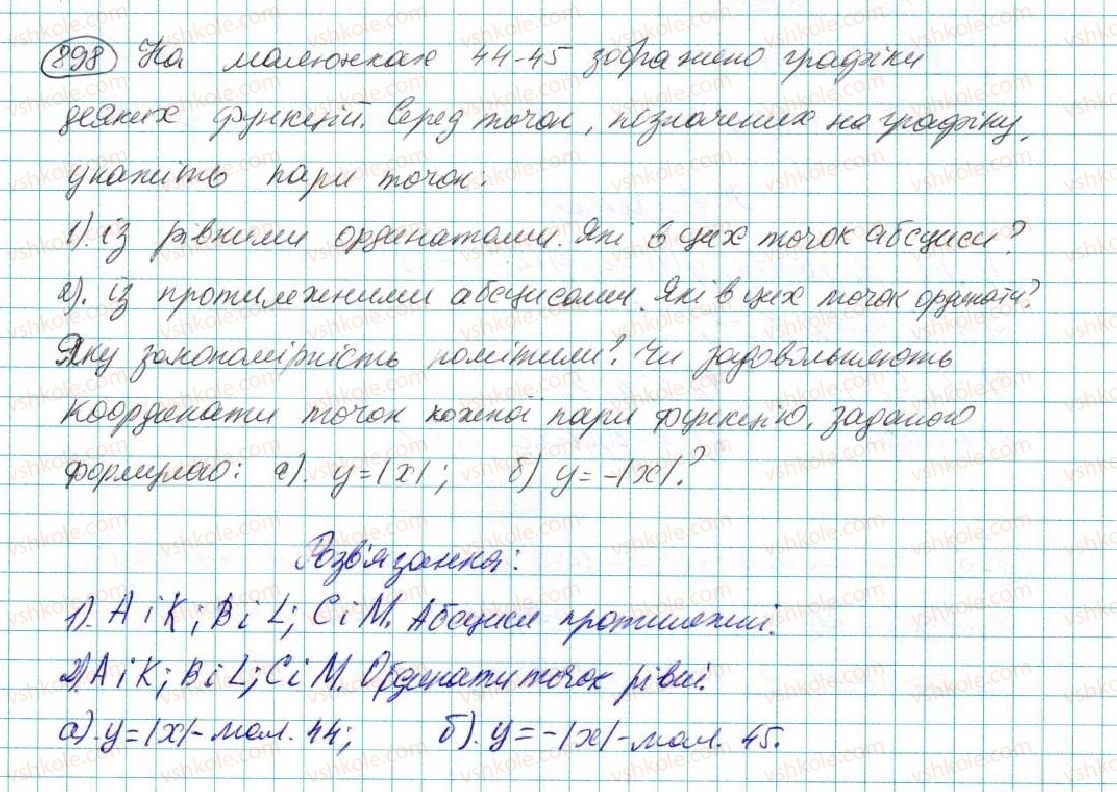 898 На малюнках 44-45 зображено графіки
деяких функцій. Серед точок, позначених на графіку,
укажіть пари точок:
1). із рівними ординатами. Які в цих точок абсциси?
2). із протилежними абсцисами. Які в цих точок ординати?
Яку закономірність помітили? Чи задовольняють
координати точок кожної пари функцію, задану
формулою: а). y=|x|; б) y=-|x|?
Розв'язання:
1). A i K; B i L; C i M. Абсциси протилежні.
2) A i K; B i L; C i M. Ординати точок рівні.
а). y=|x| - мал. 44; б). y=-|x| - мал. 45.